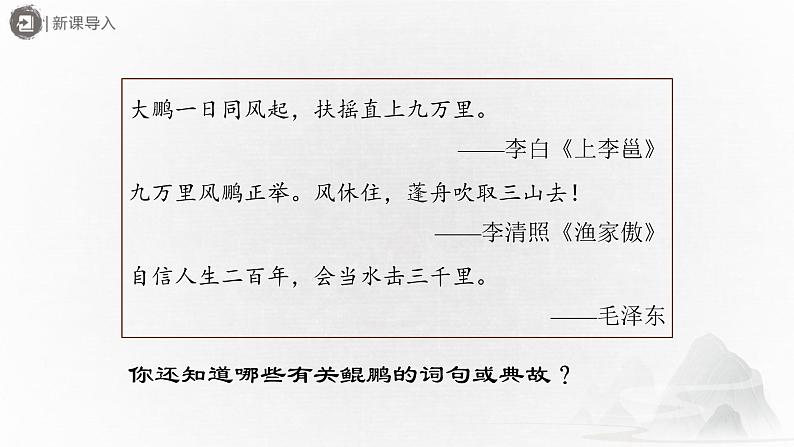 新课导入
大鹏一日同风起，扶摇直上九万里。
——李白《上李邕》
九万里风鹏正举。风休住，蓬舟吹取三山去！
——李清照《渔家傲》
自信人生二百年，会当水击三千里。
——毛泽东
你还知道哪些有关鲲鹏的词句或典故？